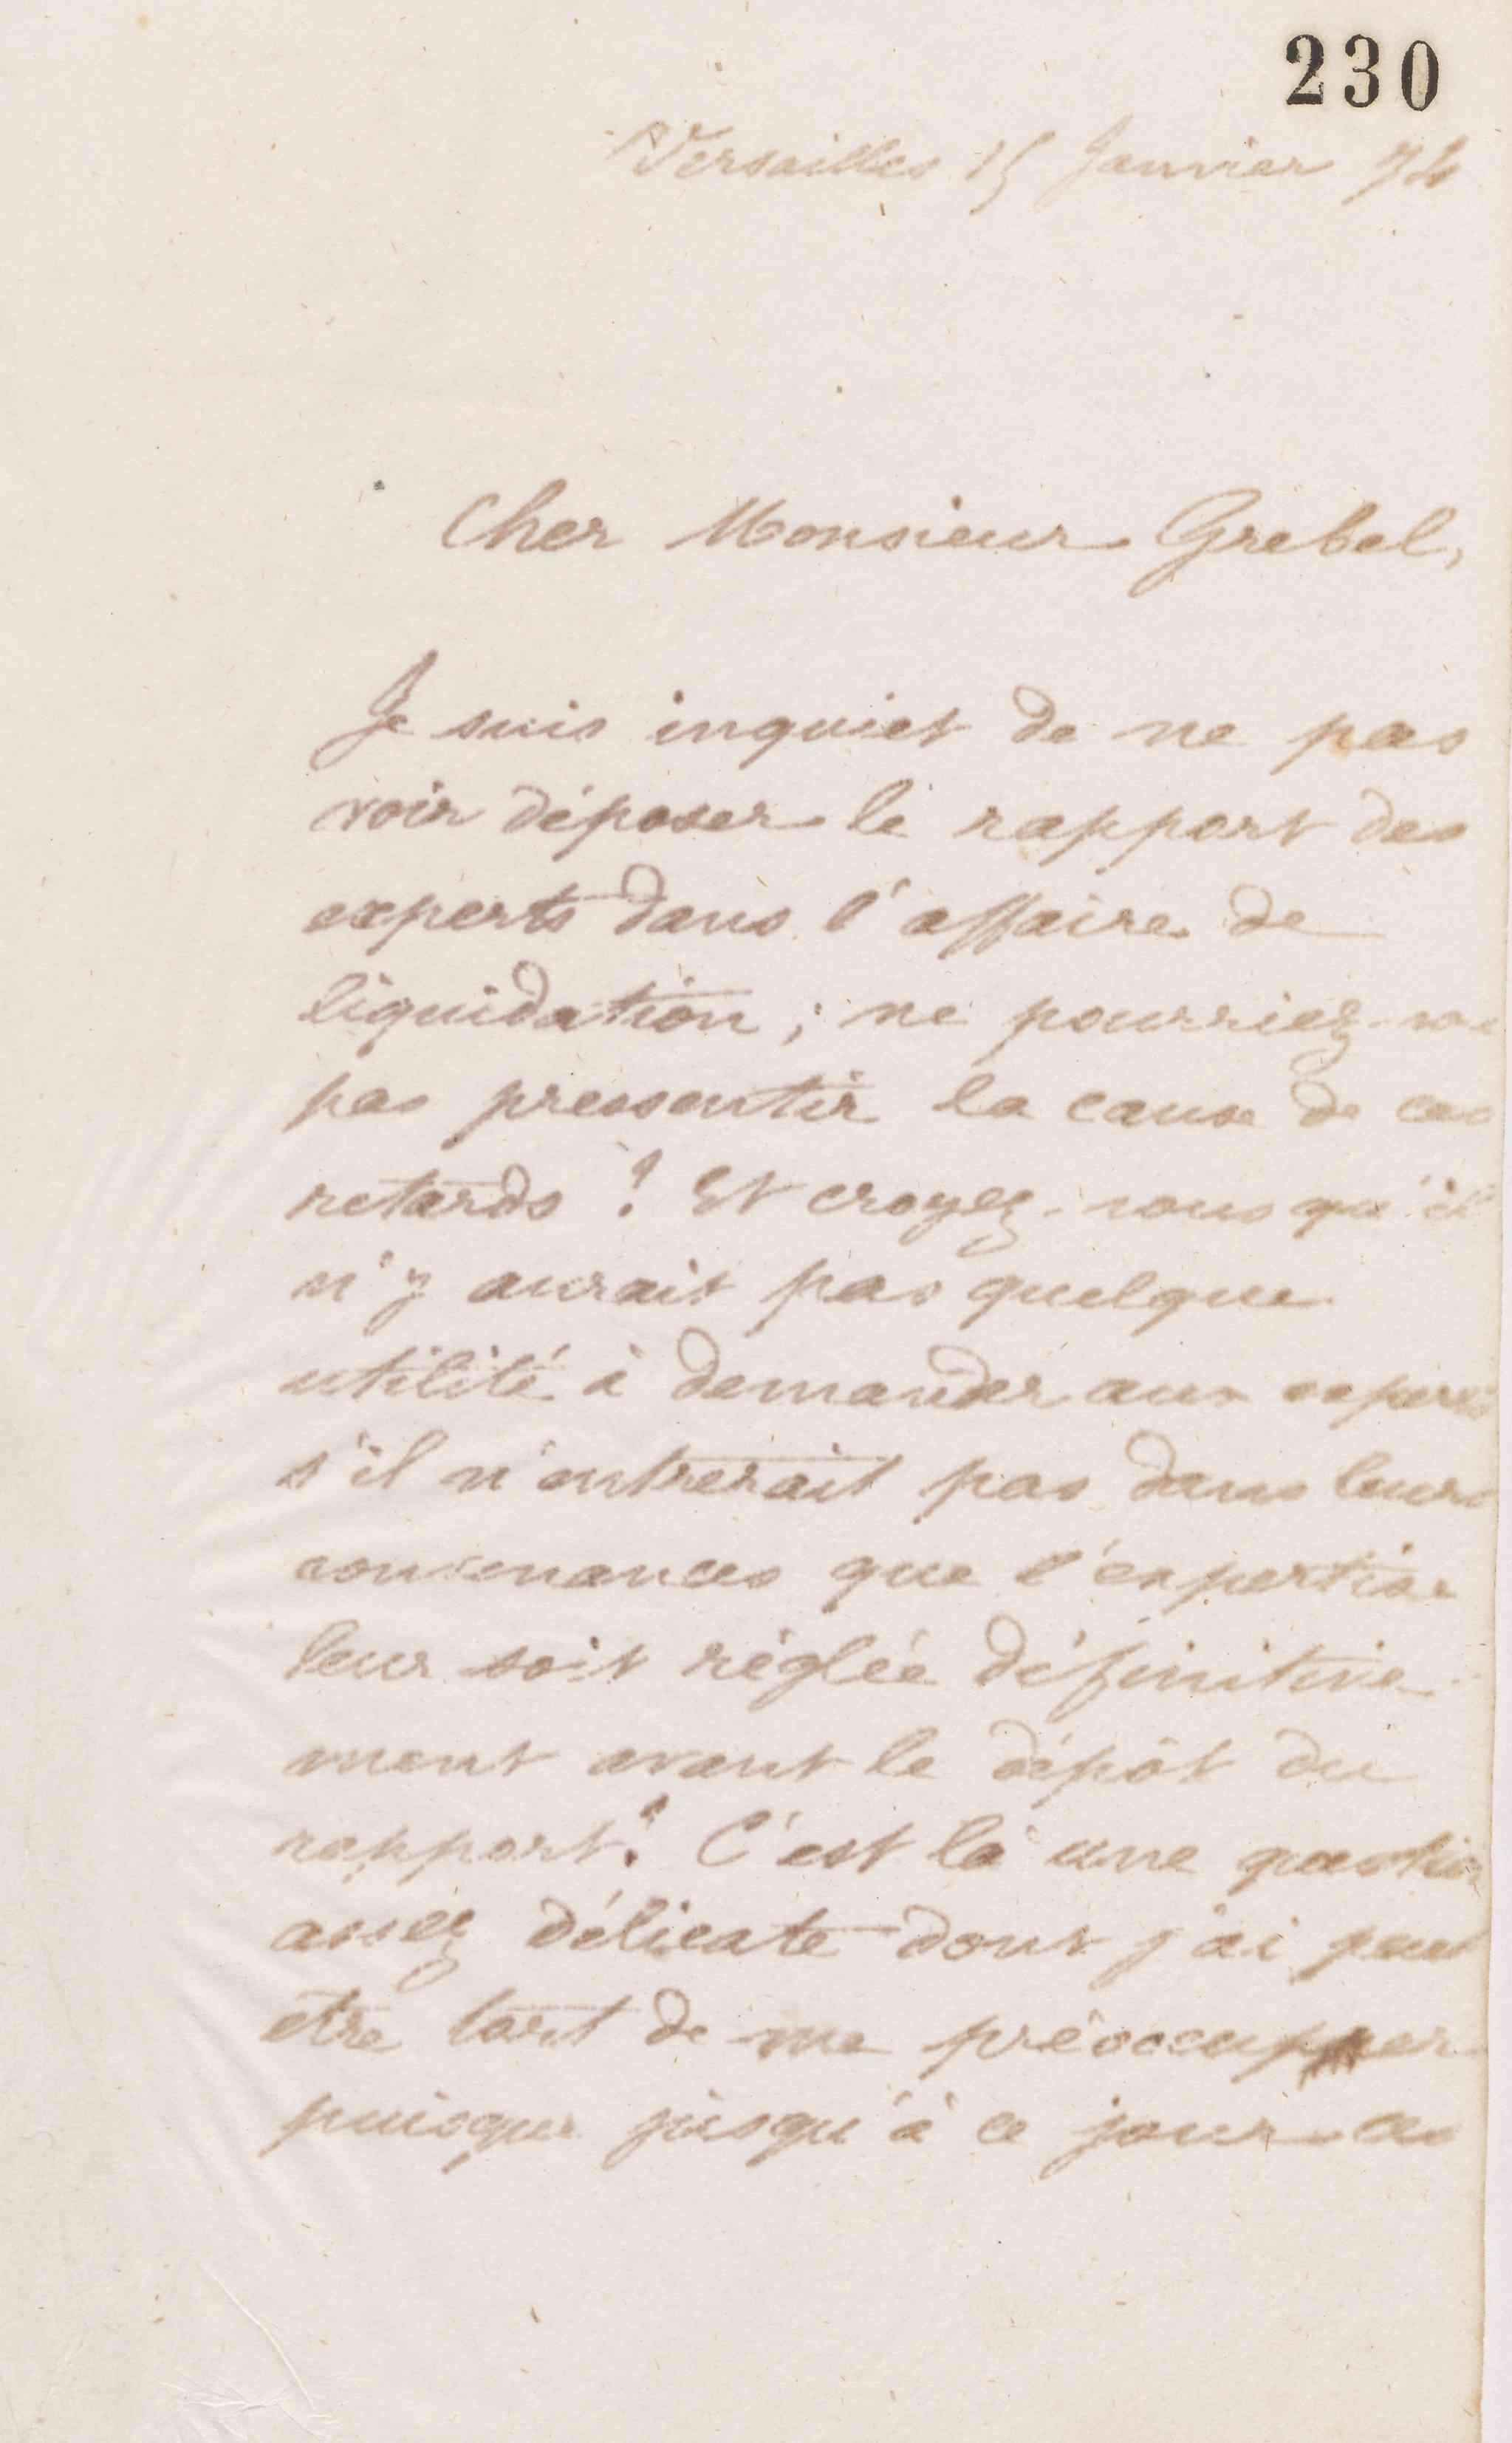 230
Versailles 15 Janvier 74
Cher Monsieur Grebel,
Je suis inquiet de ne pas
voir déposer le rapport des
experts dans l'affaire de
liquidation ; ne pourriez-vo
pas pressentir la cause de ces
retards ? Et croyez-vous qu'il
n'y aurait pas quelque
utilité à demander aux experts
s'il n'entrerait pas dans leurs
convenances que l'expertise
leur soit réglée définitive-
ment avant le dépôt du
rapport ? C'est là une question
assez délicate dont j'ai peut
être tort de me préoccupper
puisque jusqu'à ce jour les